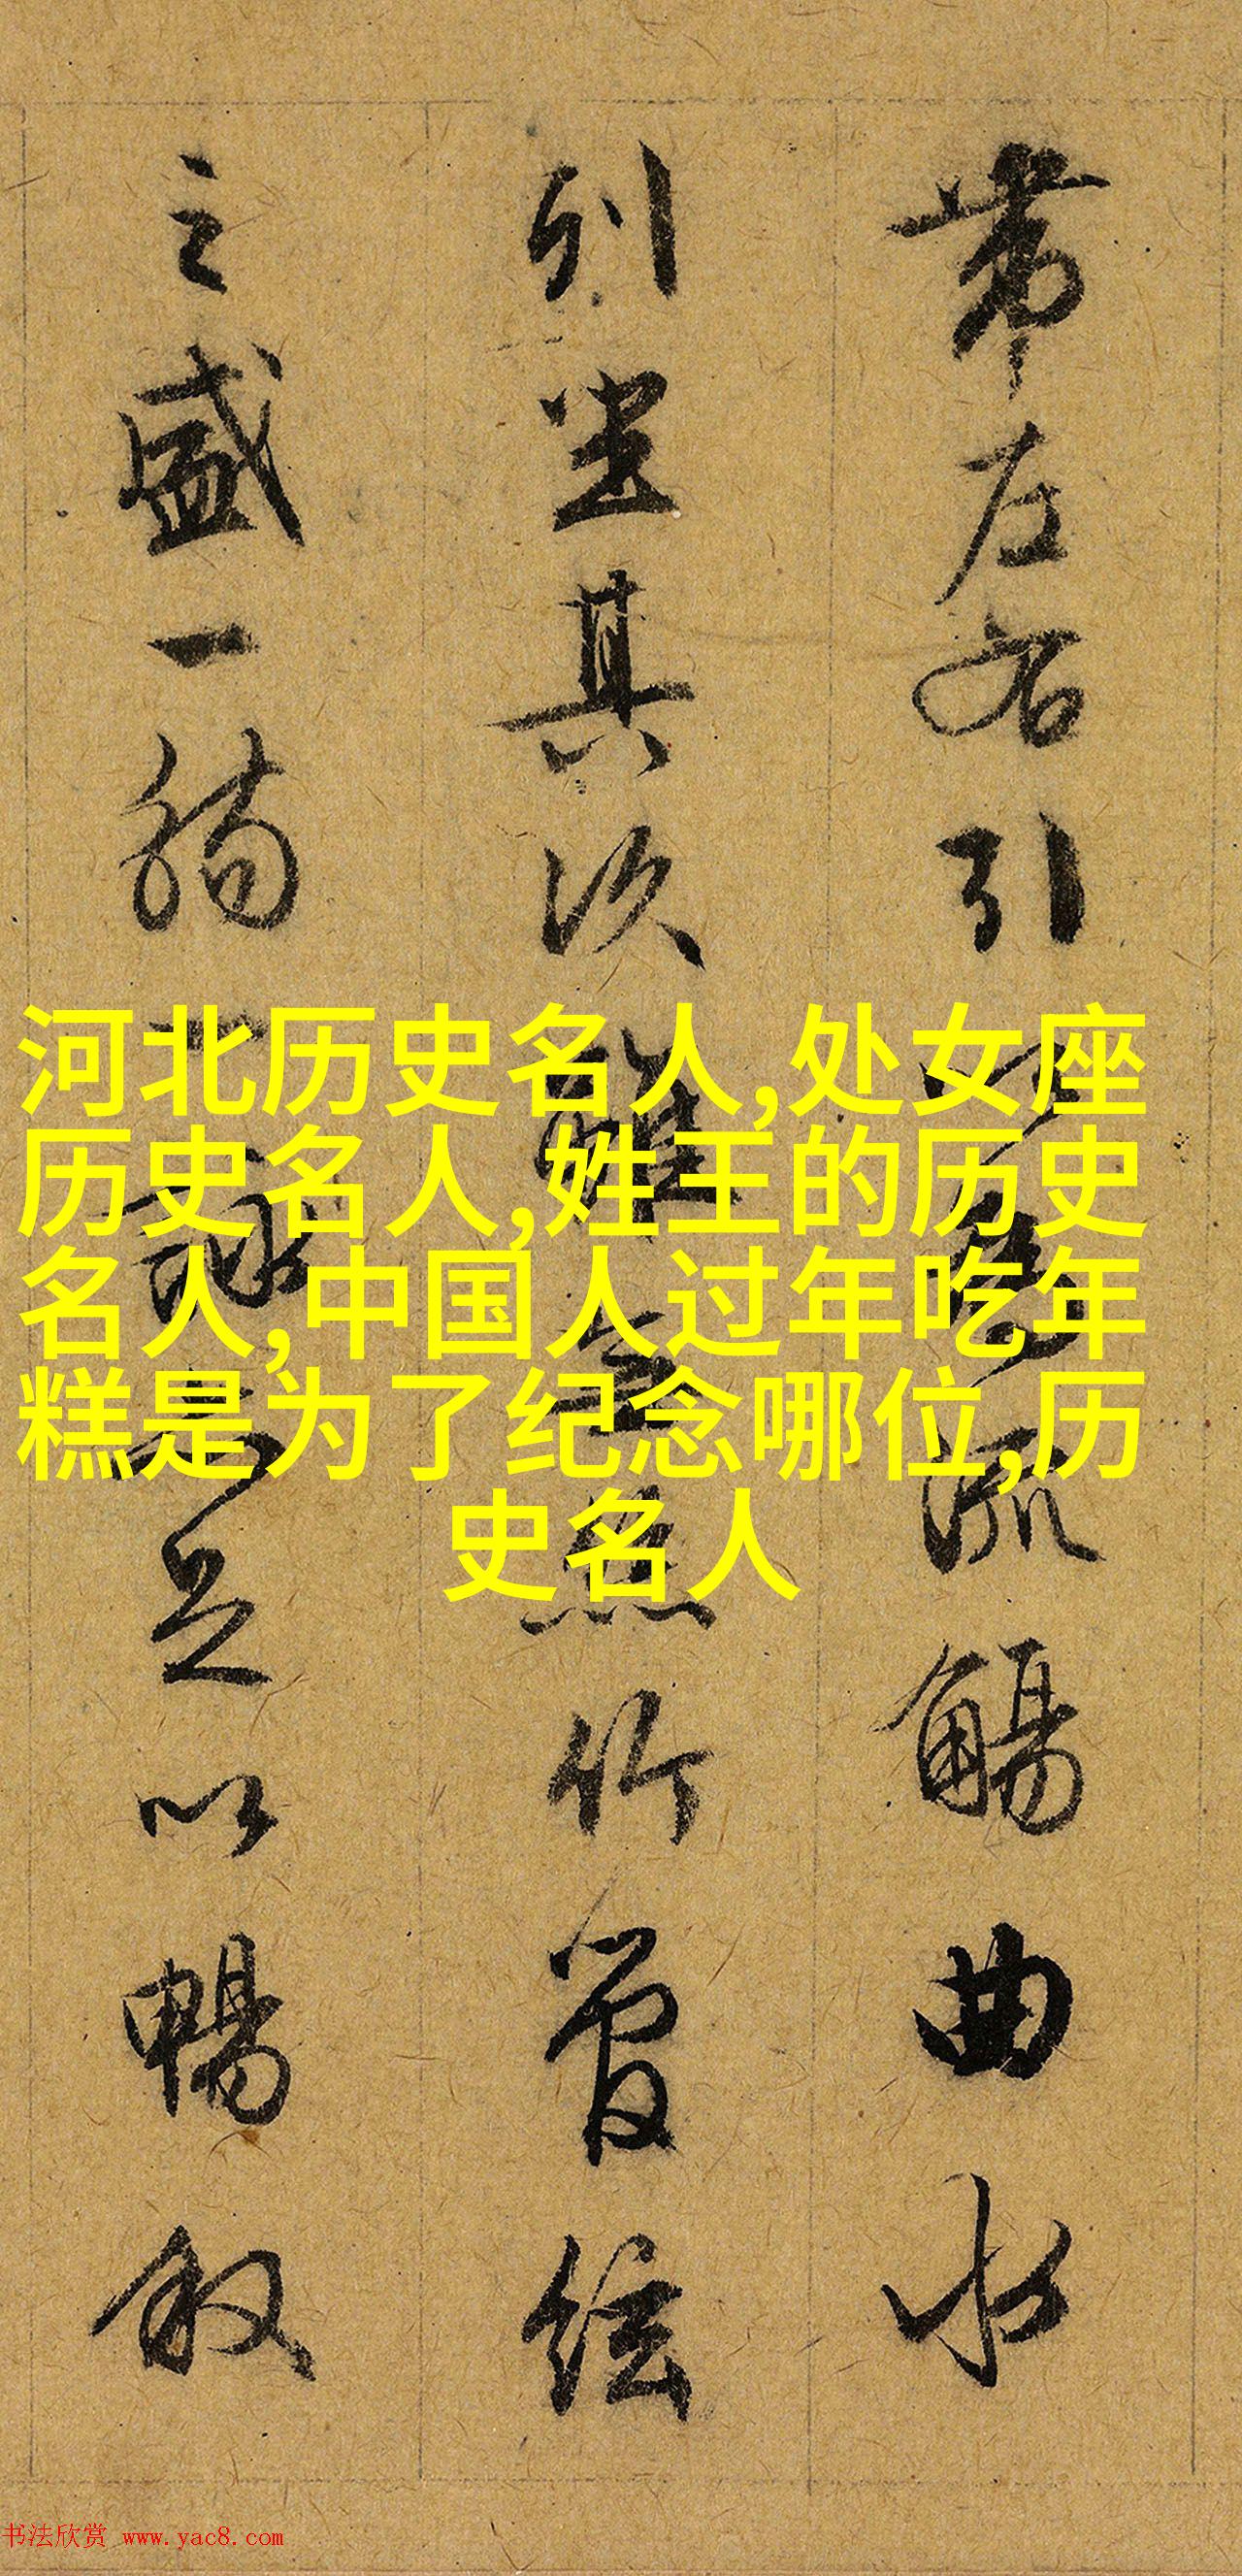 帶左右引以為流觴曲水
列坐其次雖無絲竹管絃
之盛一觴一詠亦足以暢叙
河北历史名人,处女座
历史名人,姓王的历史
名人,中国人过年吃年
糕是为了纪念哪位,历
史名人
书法欣赏 www.yac8.com